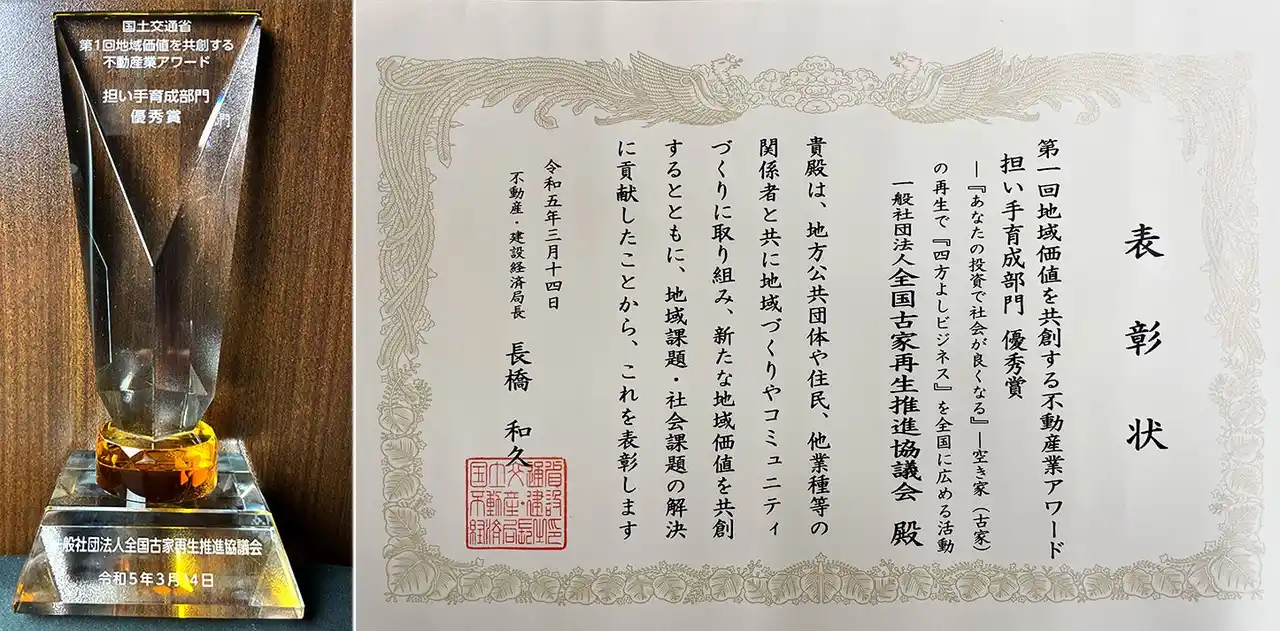 国土交通省
第1回地域価値を共創する
不動産業アワード
担い手育成部門
優秀賞
般社団法人全国古家再生推進協議会
令和5年3月 4日
表彰状
第一回地域価値を共創する不動産業アワード
担い手育成部門 優秀賞
―『あなたの投資で社会が良くなる』―空き家（古家）
の再生で『四方よしビジネス』を全国に広める活動
一般社団法人全国古家再生推進協議会 殿
貴殿は、地方公共団体や住民、他業種等の
関係者と共に地域づくりやコミュニティ
づくりに取り組み、新たな地域価値を共創
するとともに、地域課題・社会課題の解決
に貢献したことから、これを表彰します
令和五年三月十四日
不動産・建設経済局長 長橋 和久